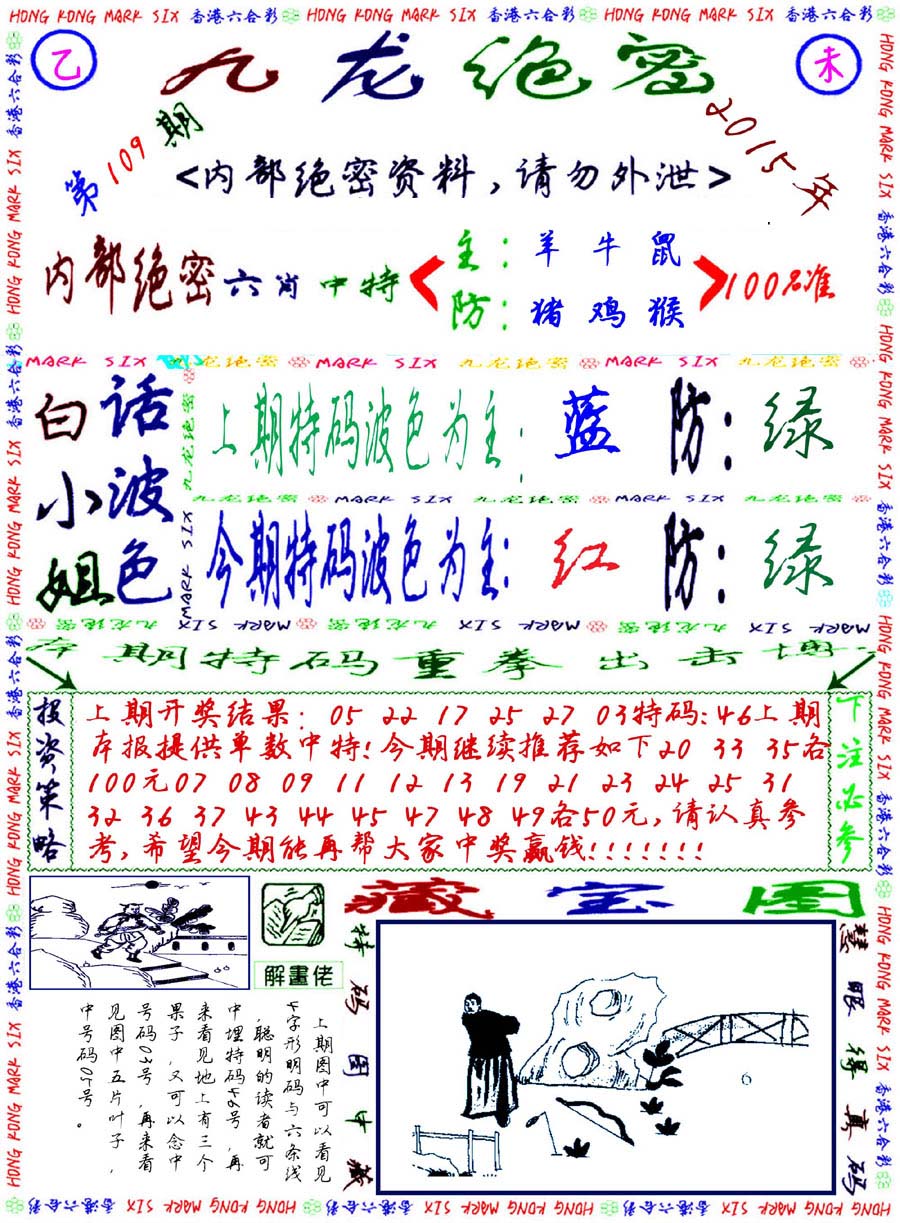 HONG KONG MARK SIX 香港六合彩 HONG KONG MARK SIX 香港六合彩 HONG KONG MARK SIX 香港六合彩
乙
九龙绝密
未
第109期
2015年
<内部绝密资料,请勿外泄>
内部绝密六肖中特
主:羊牛鼠
防:猪鸡猴
100%准
MARK SIX 九龙绝密 MARK SIX 九龙绝密 MARK SIX 九龙绝密
白话
小波
姐色
上期特码波色为主:蓝 防:绿
九龙绝密 MARK SIX 九龙绝密 MARK SIX 九龙绝密
今期特码波色为主:红 防:绿
MARK SIX 九龙绝密 MARK SIX 九龙绝密 MARK SIX 九龙绝密
本期特码重拳出击博一
投资策略
上期开奖结果:05 22 17 25 27 03特码:46上期
本报提供单数中特!今期继续推荐如下20 33 35各
100元07 08 09 11 12 13 19 21 23 24 25 31
32 36 37 43 44 45 47 48 49各50元,请认真参
考,希望今期能再帮大家中奖赢钱!!!!!!!
下注必参
藏宝图
解畫佬
特码图中藏
慧眼得真码
上期图中可以看见
4字形明码与六条线
,聪明的读者就可
中埋特码46号,再
来看见地上有三个
果子,又可以念中
号码03号,再来看
见图中五片叶子,
中号码05号。
6
HONG KONG MARK SIX 香港六合彩 HONG KONG MARK SIX 香港六合彩 HONG KONG MARK SIX 香港六合彩